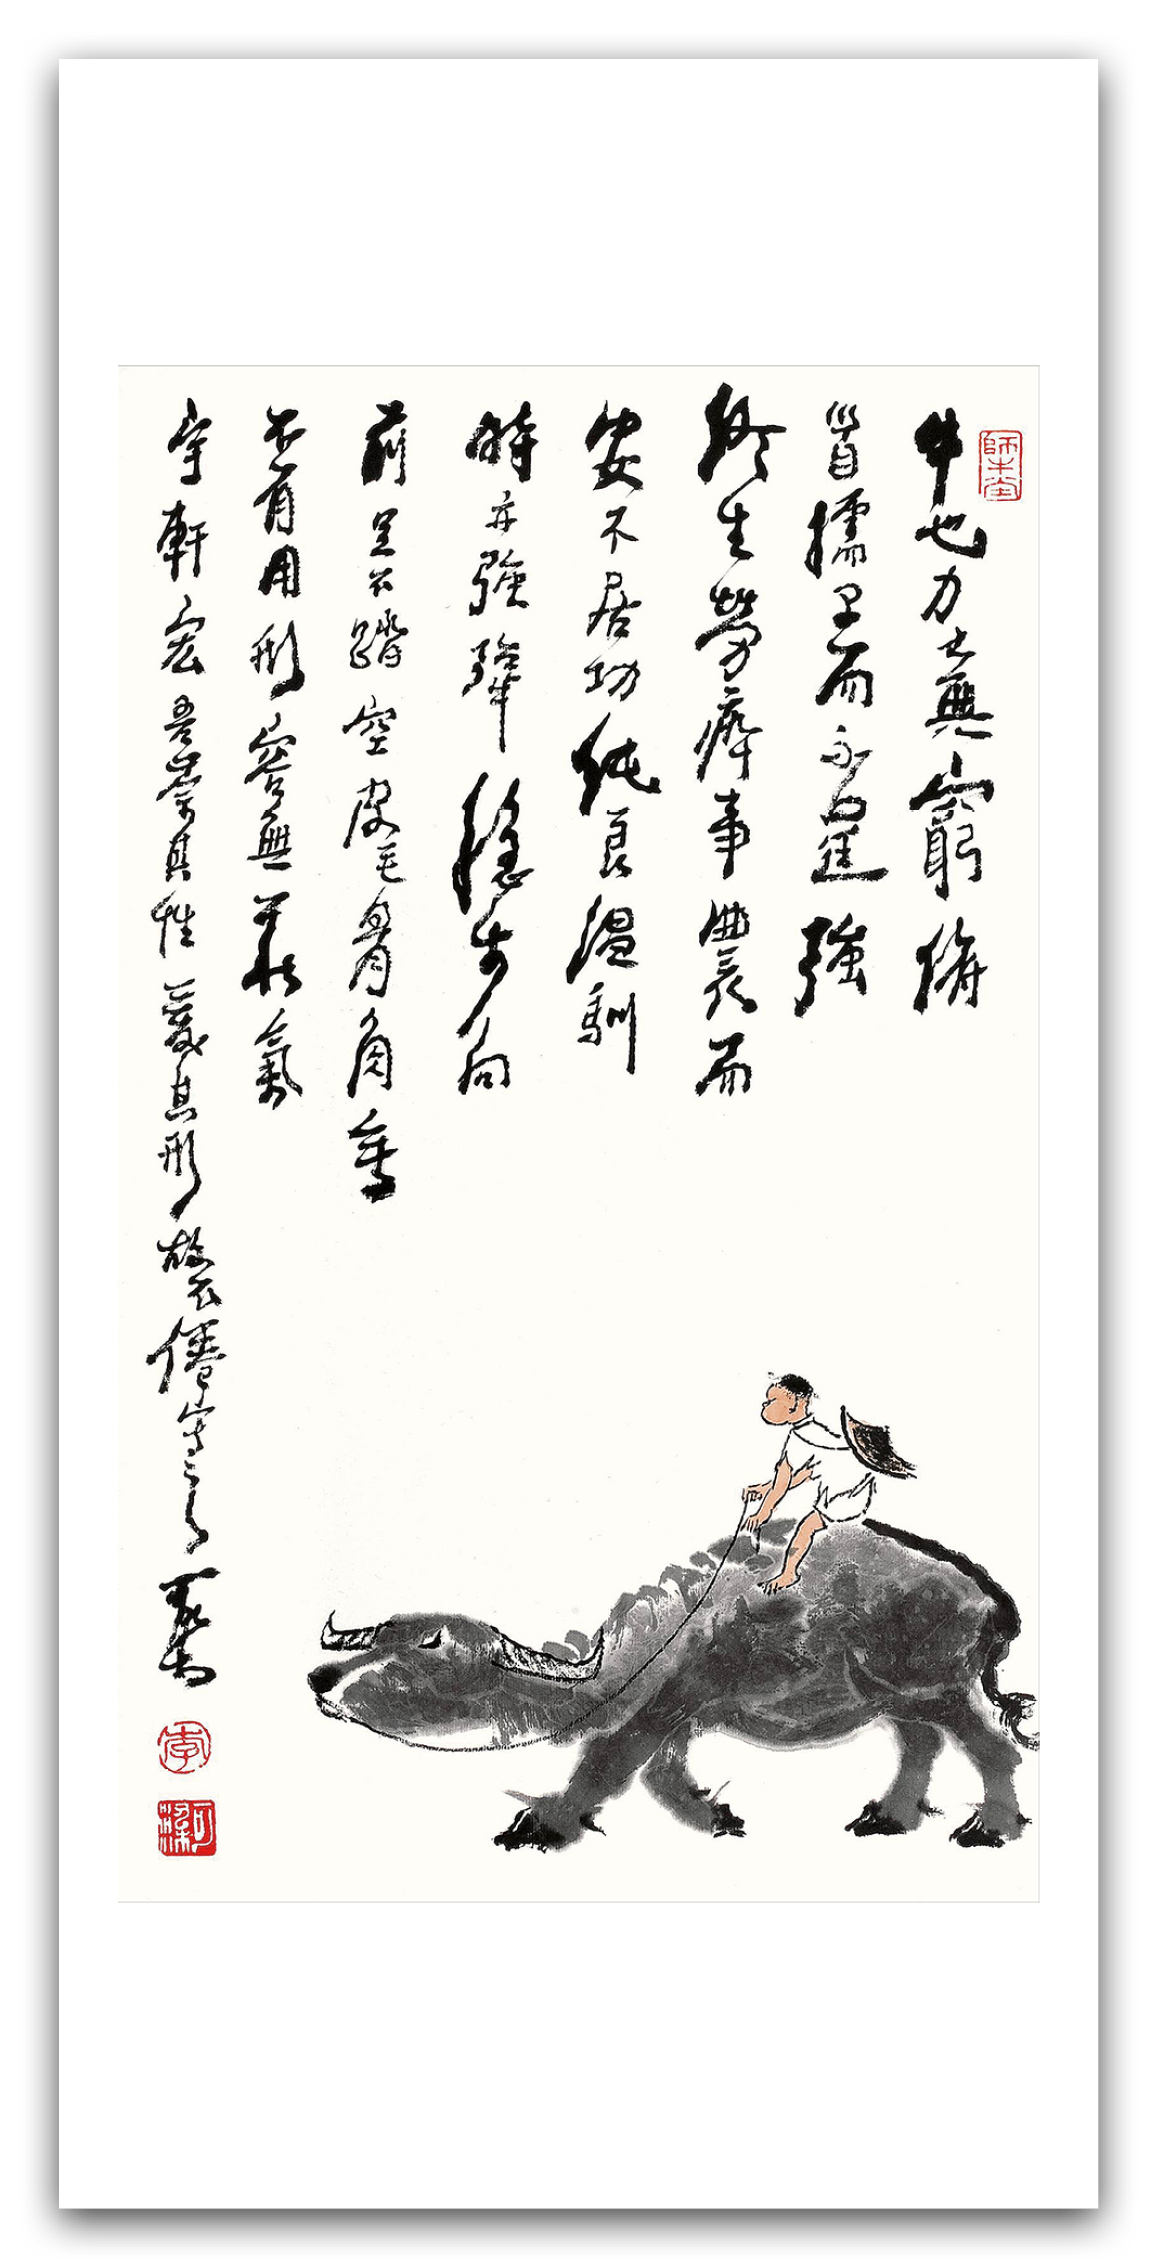 師牛堂
牛也力大無窮俯
首孺子而不逞強
終生勞瘁事農而
安不居功純良溫馴
時亦強犟穩步向
前足不踏空皮毛骨角無
不有用形容無華氣
宇軒宏吾崇其性愛其形故不倦寫之可染
李
可染